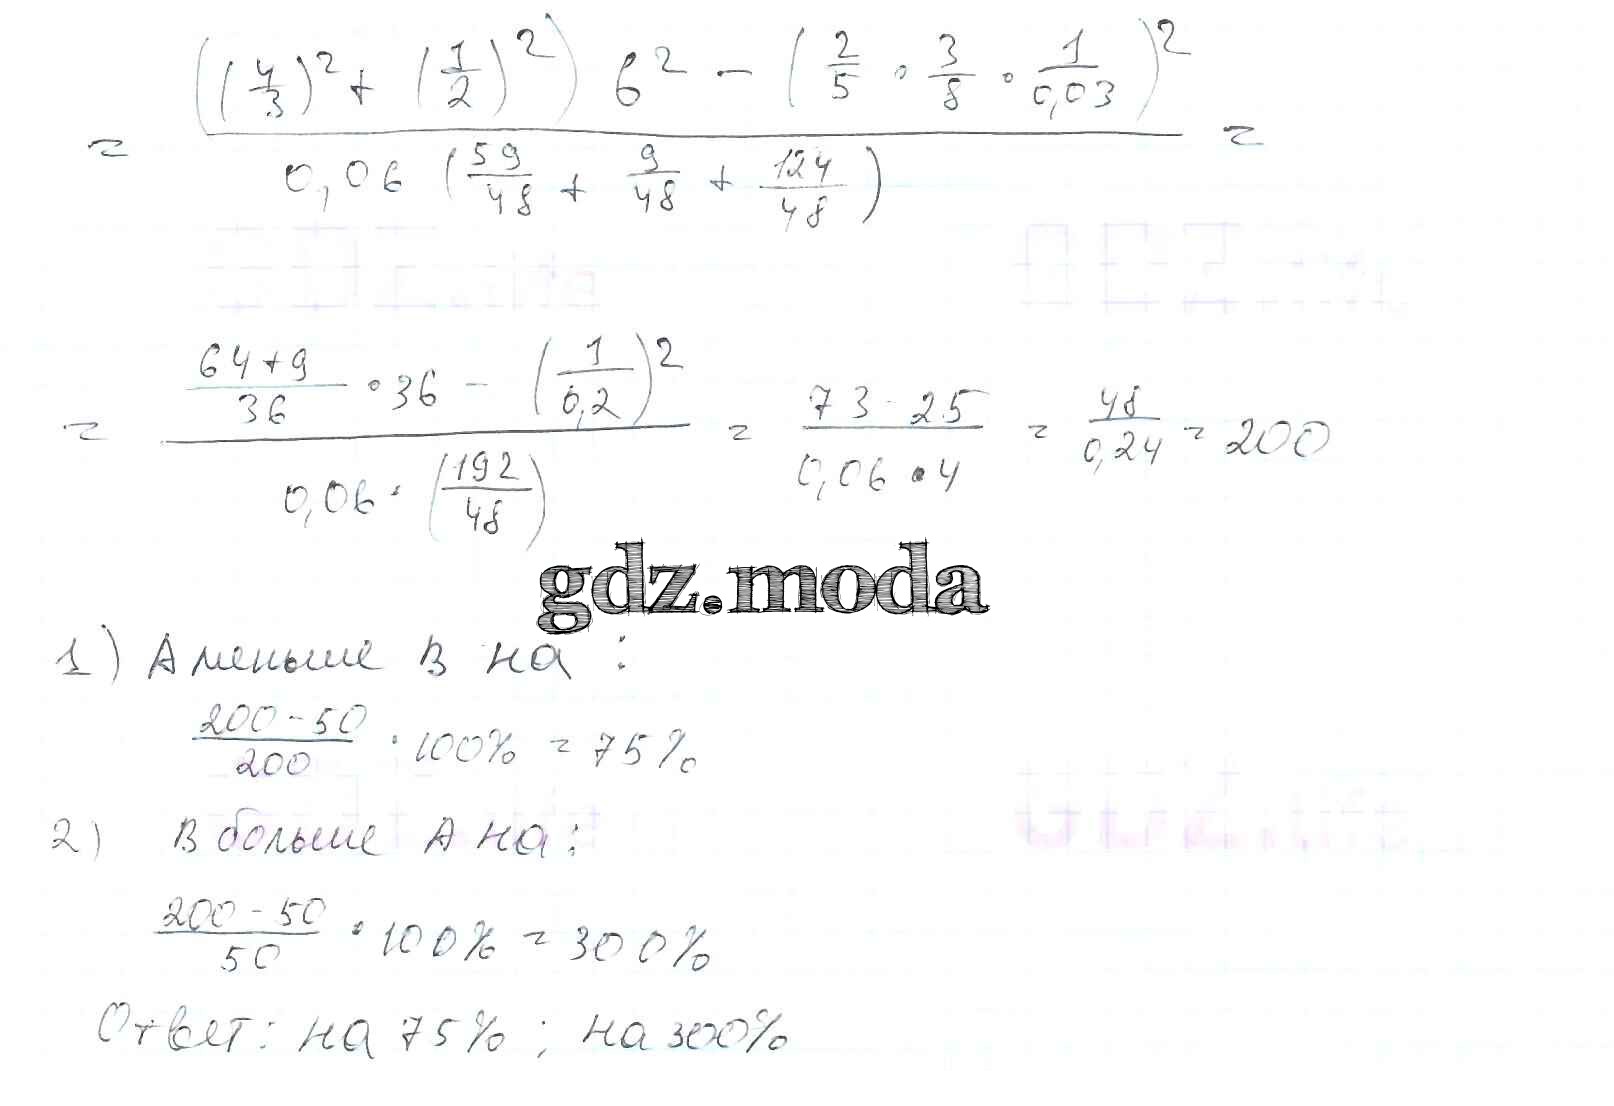 = (((4/3)² + (1/2)²) 6² - (2/5 · 3/8 · 1/0,03)²) / (0,06 (59/48 + 9/48 + 124/48)) =
= ((64+9)/36 · 36 - (1/0,2)²) / (0,06 · (192/48)) = (73 - 25)/(0,06 · 4) = 48/0,24 = 200
gdz.moda
1) А меньше В на :
(200-50)/200 · 100% = 75%
2) В больше А на :
(200-50)/50 · 100% = 300%
Ответ: на 75% ; на 300%